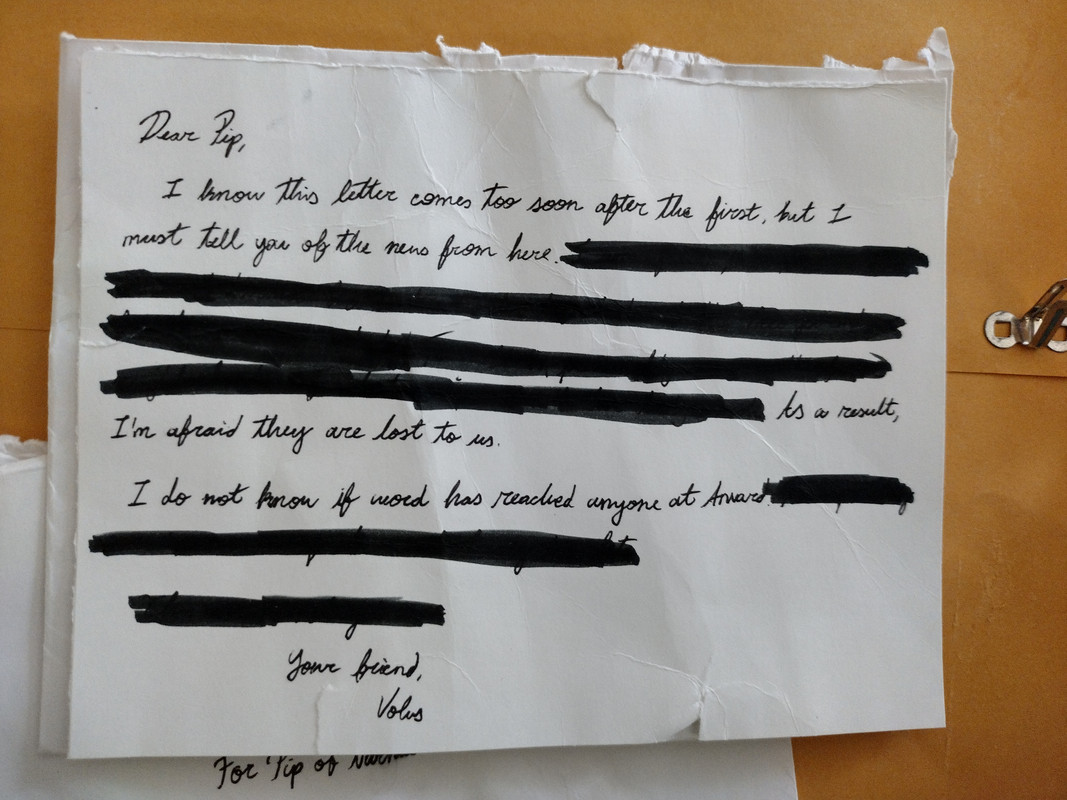 Dear Pip,
I know this letter comes too soon after the first, but I
must tell you of the news from here.
As a result,
I'm afraid they are lost to us.
I do not know if word has reached anyone at
Your friend,
Volus
For Pip of